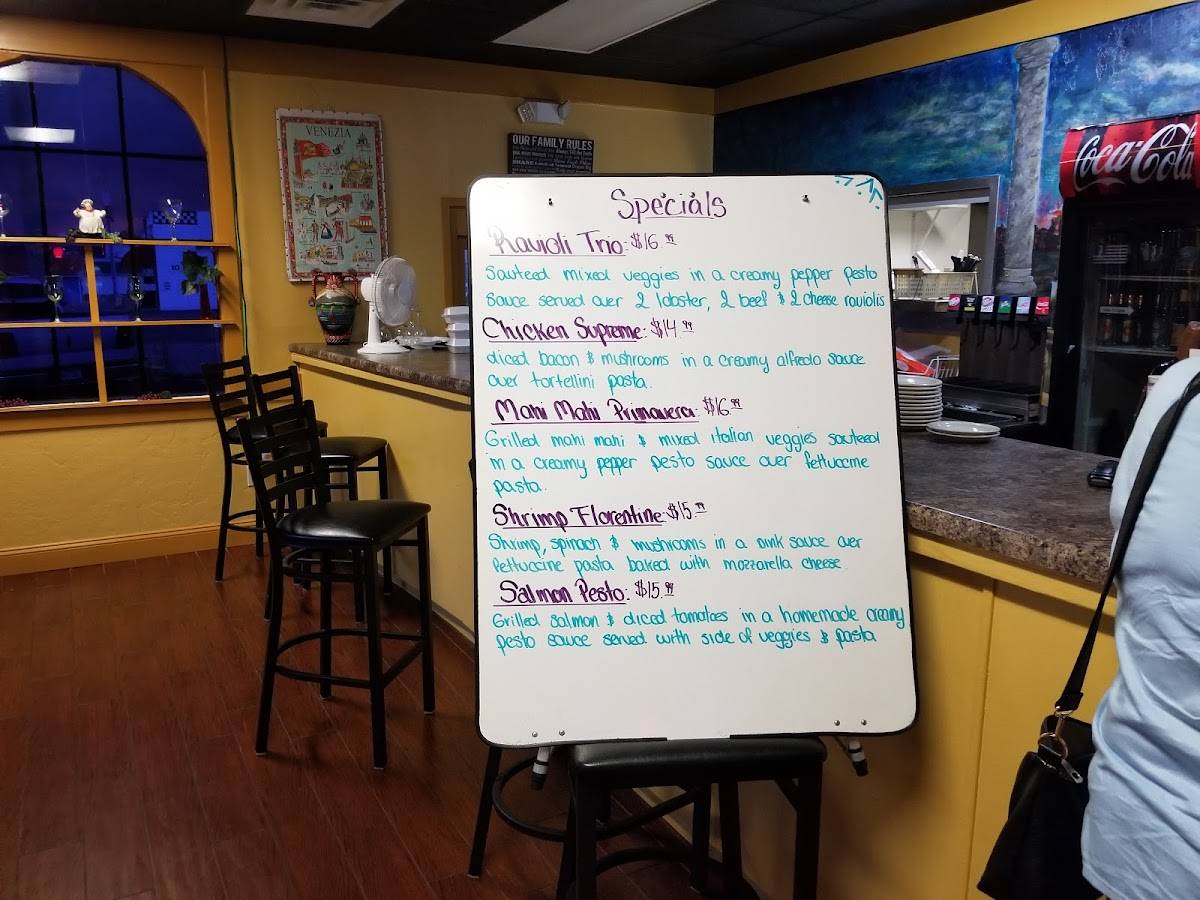 VENEZIA
OUR FAMILY RULES
Coca-Cola
Specials
Ravioli Trio: $16.99
Sauteed mixed veggies in a creamy pepper pesto
sauce served over 2 lobster, 2 beef & 2 cheese raviolis
Chicken Supreme: $14.99
diced bacon & mushrooms in a creamy alfredo sauce
over tortellini pasta.
Mahi Mahi Primavera: $16.99
Grilled mahi mahi & mixed italian veggies sauteed
in a creamy pepper pesto sauce over fettuccine
pasta.
Shrimp Florentine: $15.99
Shrimp, spinach & mushrooms in a pink sauce over
fettuccine pasta baked with mozzarella cheese.
Salmon Pesto: $15.99
Grilled salmon & diced tomatoes in a homemade creamy
pesto sauce served with side of veggies & pasta